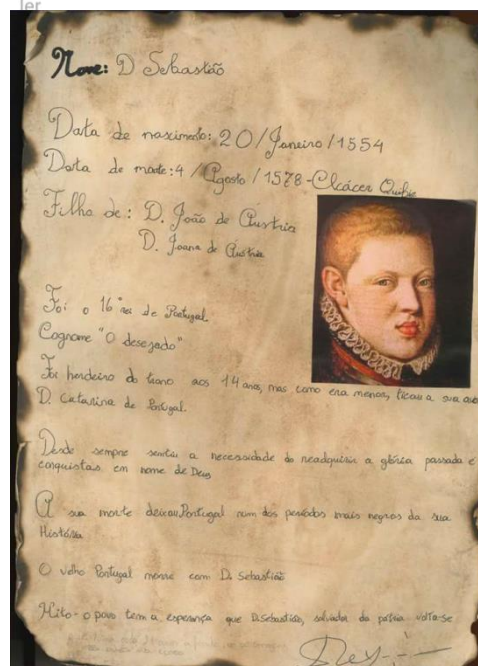 ler
Nome: D Sebastião
Data de nascimento: 20/Janeiro/1554
Data de morte: 4/Agosto/1578-Clcácer Quibir
Filho de: D. João de Áustria
D. Joana de Áustria
Foi o 16º rei de Portugal
Cognome "O desejado"
Foi herdeiro do trono aos 14 anos, mas como era menor, ficou a sua avó
D. Catarina de Portugal.
Desde sempre sentiu a necessidade de readquirir a glória passada e
conquistas em nome de Deus
A sua morte deixou Portugal num dos períodos mais negros da sua
História
O velho Portugal morre com D. Sebastião
Mito - o povo tem a esperança que D.Sebastião, salvador da pátria volta-se